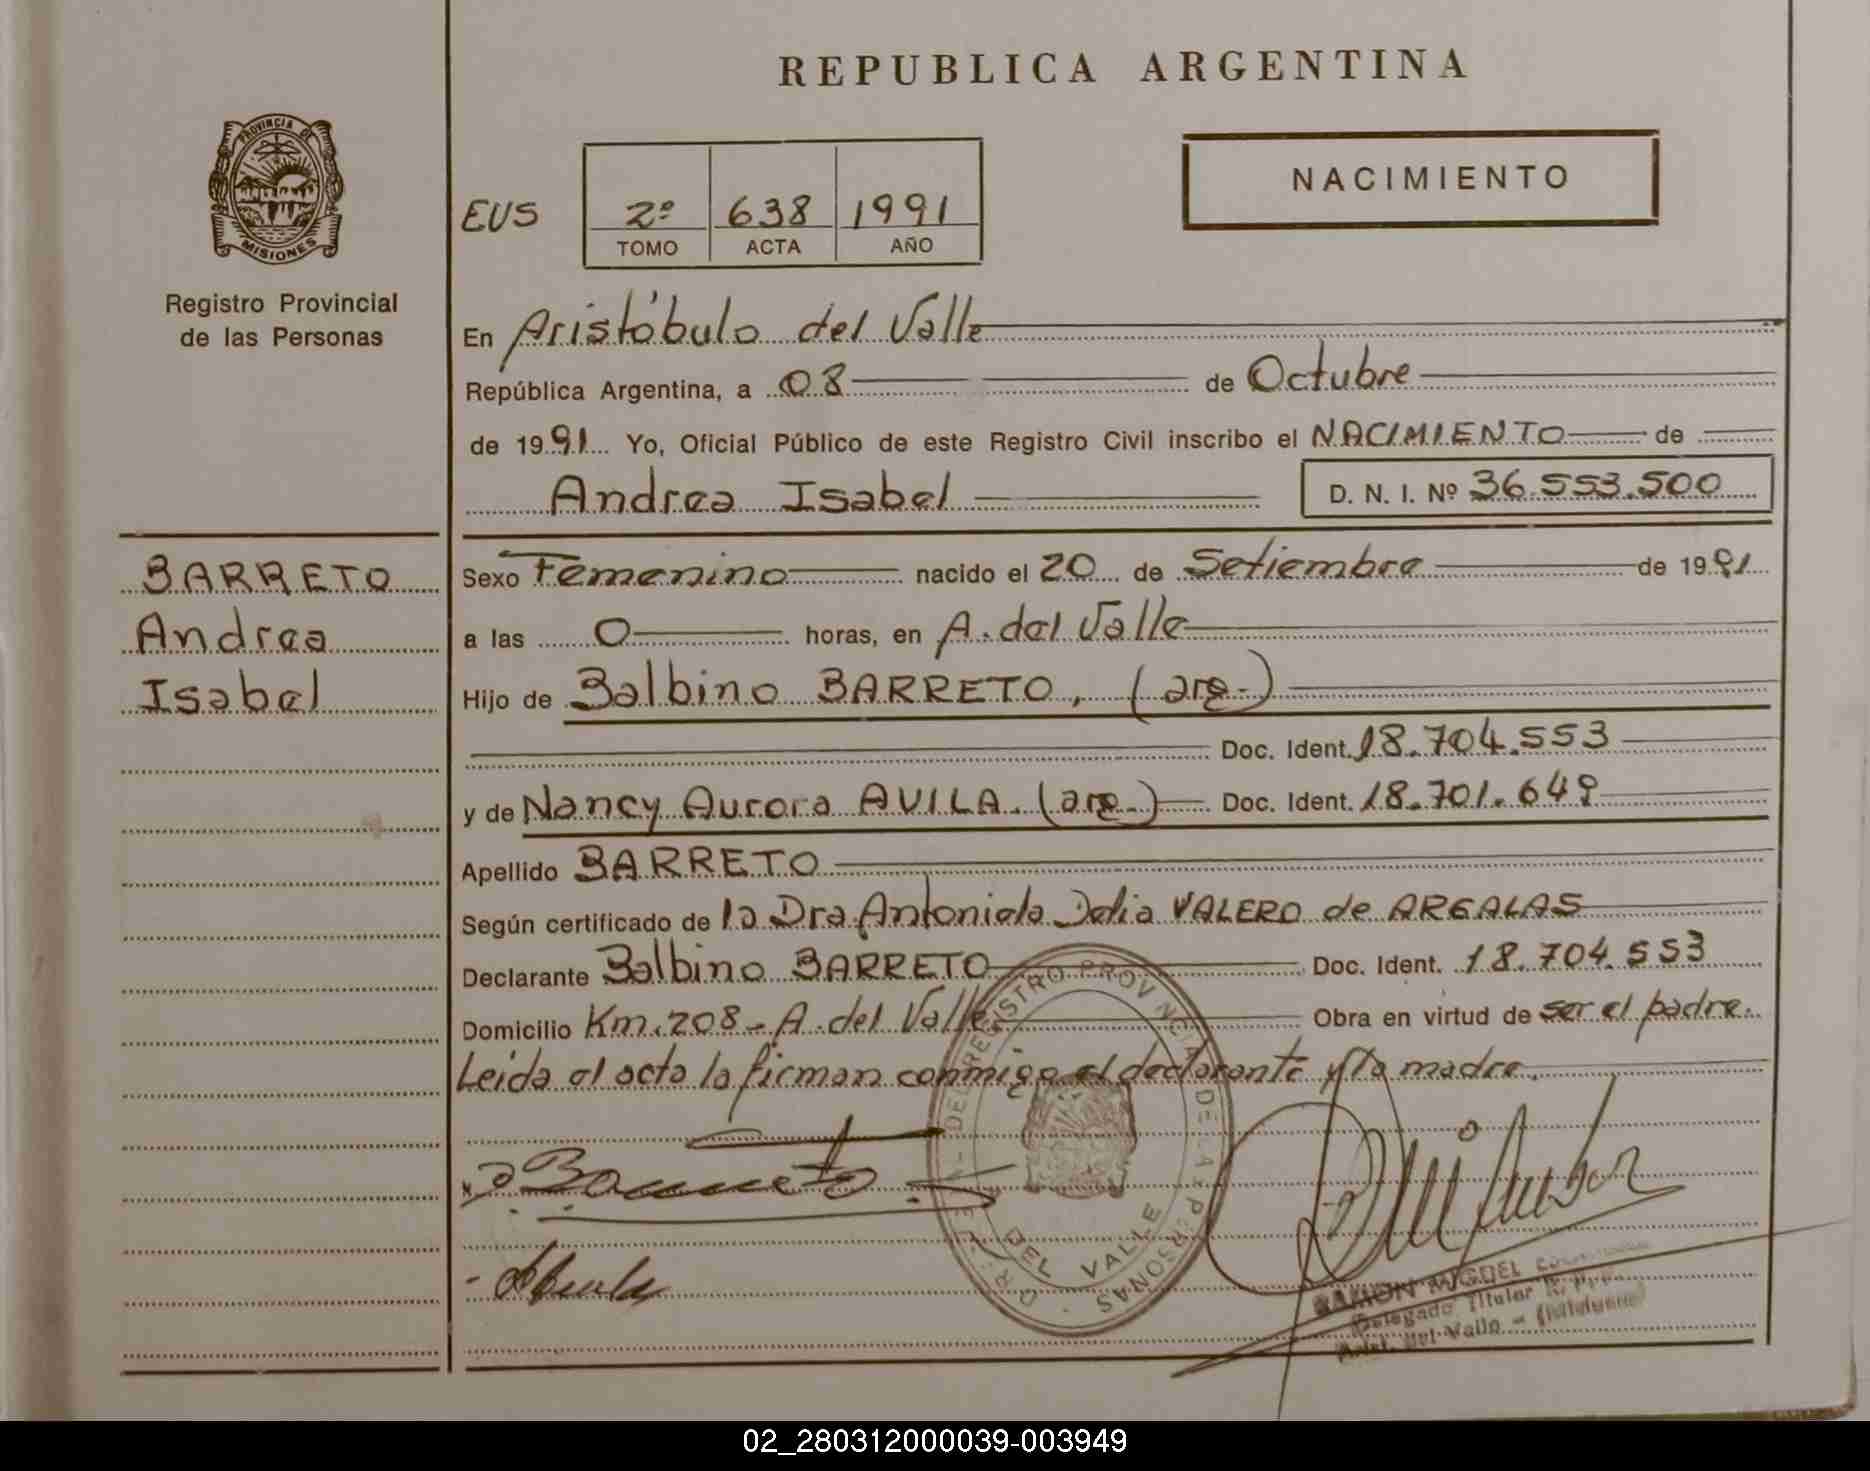 REPUBLICA ARGENTINA
PROVINCIA DE
MISIONES
Registro Provincial
de las Personas
NACIMIENTO
EUS 2º 638 1991
TOMO ACTA AÑO
En Aristóbulo del Valle
República Argentina, a 08 de Octubre
de 1991 Yo, Oficial Público de este Registro Civil inscribo el NACIMIENTO de
Andrea Isabel D. N. I. Nº 36.553.500
BARRETO
Andrea
Isabel
Sexo Femenino nacido el 20 de Setiembre de 1991
a las 0 horas, en A. del Valle
Hijo de Balbino BARRETO, (arg.)
Doc. Ident. 18.704.553
y de Nancy Aurora AVILA. (arg.) Doc. Ident. 18.701.649
Apellido BARRETO
Según certificado de la Dra. Antoniela Delia VALERO de ARGALAS
Declarante Balbino BARRETO Doc. Ident. 18.704.553
Domicilio Km. 208 - A. del Valle. Obra en virtud de ser el padre.
Leída el acta la firman conmigo el declarante y la madre.
Barreto
DEL REGISTRO PROVINCIAL DE LAS PERSONAS
DEL VALLE
RAMON MIGUEL
Delegado Titular
del Valle - (Misiones)
02_280312000039-003949